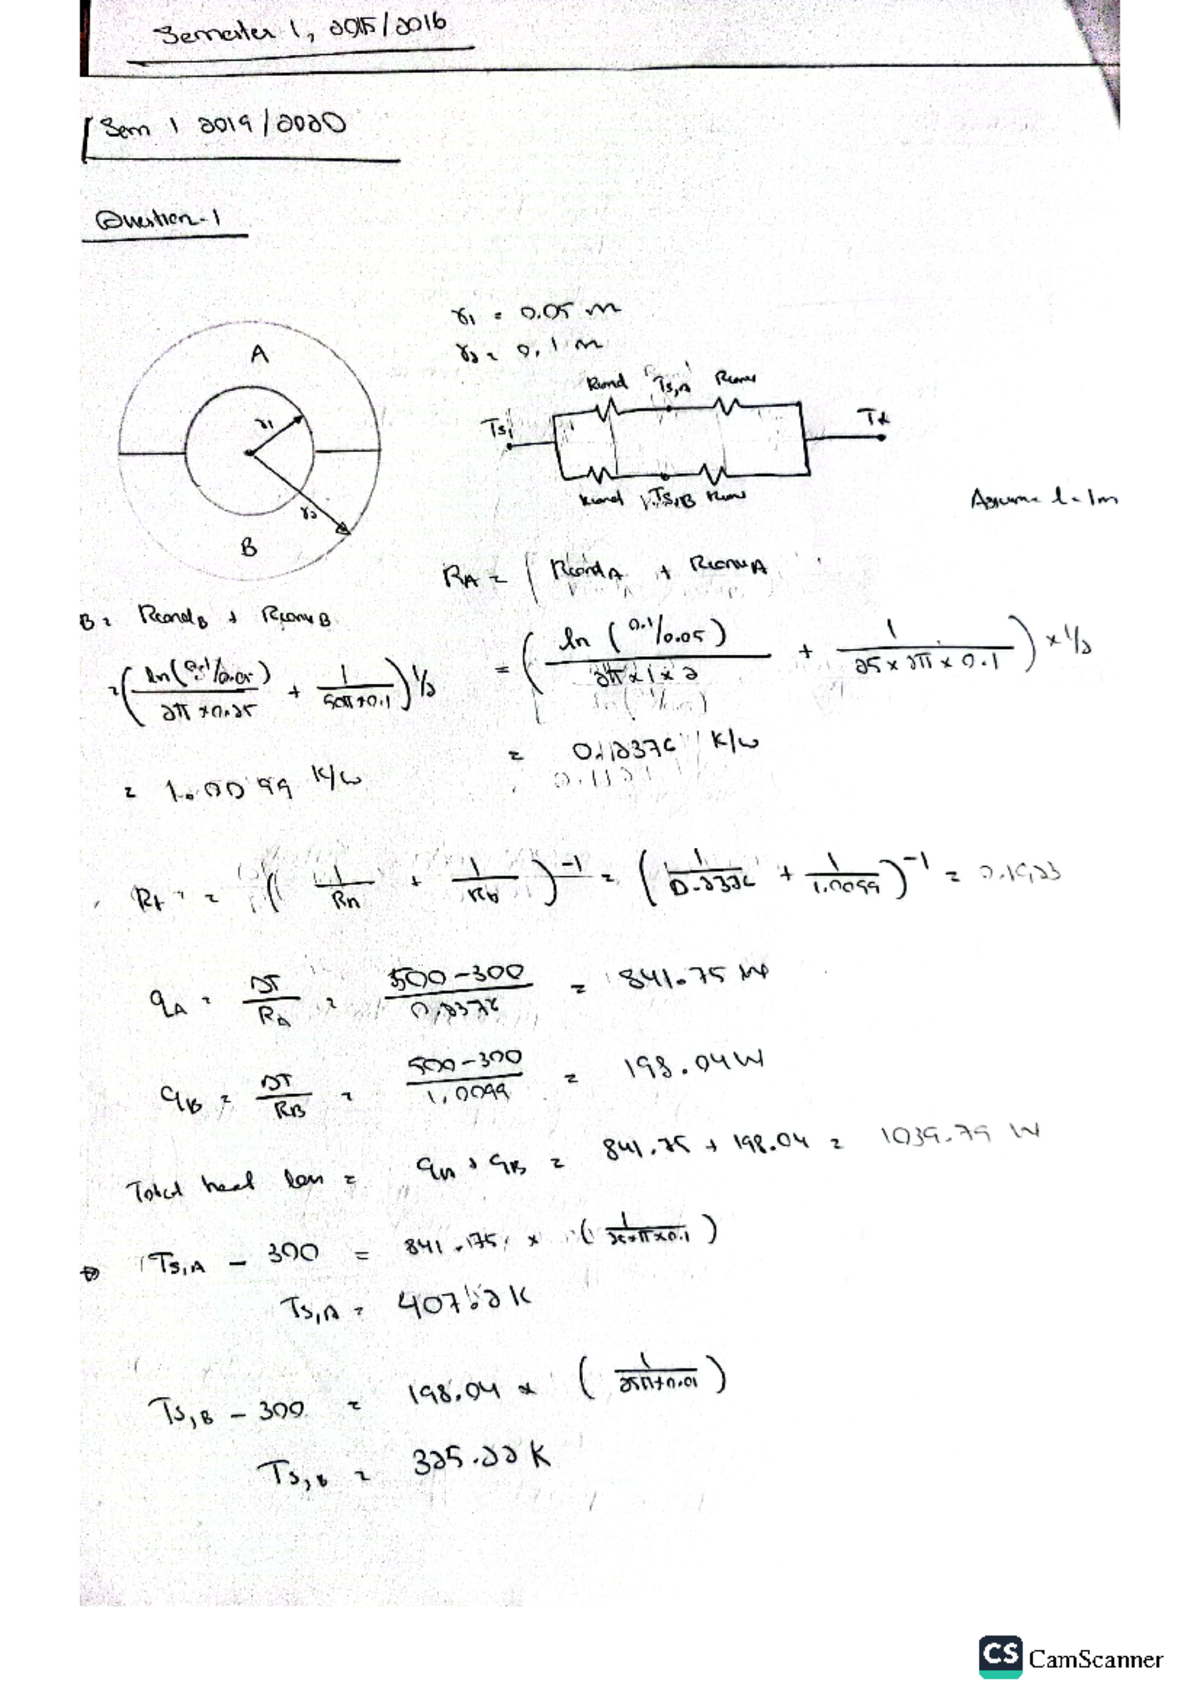 Semester 1, 2015/2016
Sem 1 2019/2020
Question-1
r1 = 0.05 m
r2 = 0.1 m
A
r1
r2
B
Rcond Ts,A Rconv
Ts1
T∞
Rcond Ts,B Rconv
Assume l = 1m
RA = ( RcondA + RconvA
B = RcondB + RconvB
= ( ln ( 0.1/0.05 ) / 2π x 1 x 2 + 1 / 25 x 2π x 0.1 ) x 1/2
= ( ln(0.1/0.05) / 2π x 0.25 + 1 / 50π x 0.1 ) 1/2
= K/W
= 1.0099 K/W
Rt = ( 1/RA + 1/Rb )^-1 = ( 1/0.2376 + 1/1.0099 )^-1 = 0.1923
qA = DT/RA = 500-300 / 0.2376 = 841.75 W
qB = DT/RB = 500-300 / 1.0099 = 198.04 W
Total heat loss = qA + qB = 841.75 + 198.04 = 1039.79 W
Ts,A - 300 = 841.75 x ( 1 / 25 x π x 0.1 )
Ts,A = 407.2 K
Ts,B - 300 = 198.04 x ( 1 / 25π x 0.01 )
Ts,B = 325.22 K
CS CamScanner